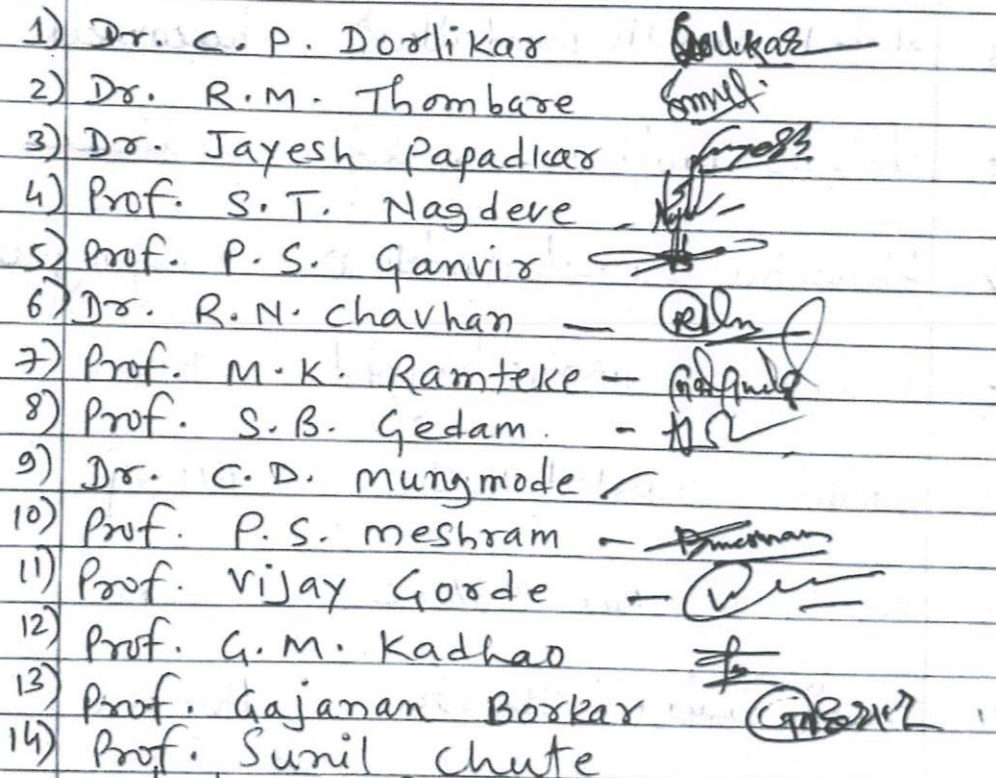 1) Dr. C. P. Dorlikar
2) Dr. R.M. Thombare
3) Dr. Jayesh Papadkar
4) Prof. S.T. Nagdeve -
5) Prof. P.S. Ganvir
6) Dr. R.N. Chavhan —
7) Prof. M.K. Ramteke —
8) Prof. S.B. Gedam. -
9) Dr. C.D. Mungmode
10) Prof. P.S. Meshram -
11) Prof. Vijay Gorde -
12) Prof. G.M. Kadhao
13) Prof. Gajanan Borkar
14) Prof. Sunil Chute